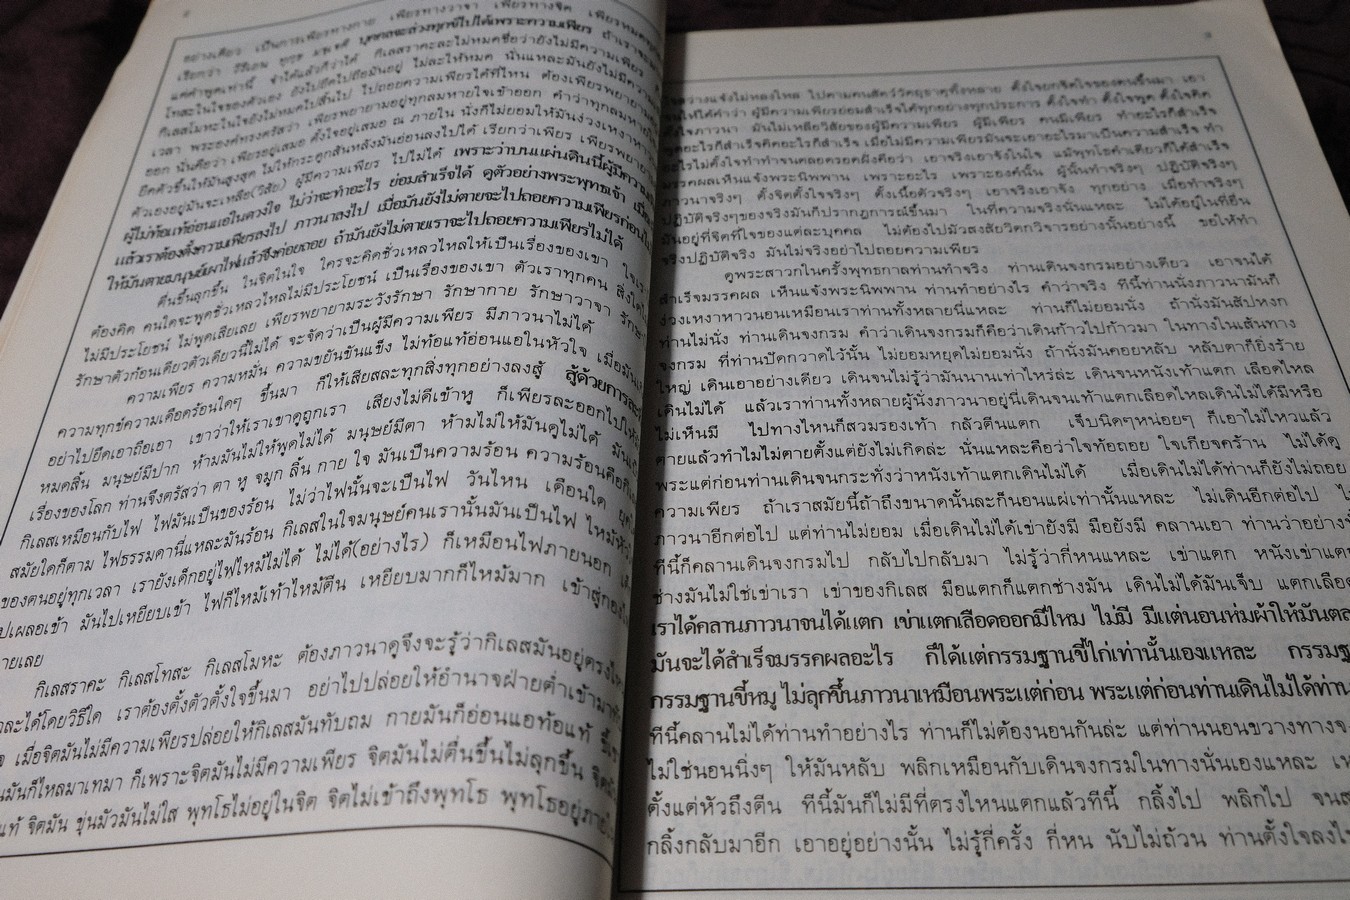 อย่างเดียว เป็นการเพียรทางกาย เพียรทางวาจา เพียรทางจิต
เรียกว่า วีริเยน ทุกฺข มจฺเจติ บุคคลจะล่วงทุกข์ไปได้เพราะความเพียร
แค่คำพูดเท่านี้ จำได้แล้วก็ว่าได้ กิเลสราคะละไม่หมดชื่อว่ายังไม่มีความเพียร
โทสะในใจของตัวเอง ยังไปยึดไปถือมันอยู่ ไม่ละให้หมด นั่นแหละมันยังไม่มีความ
กิเลสโมหะในใจยังไม่หมดไปสิ้นไป ไปถอยความเพียรได้ที่ไหน ต้องเพียรพยายาม
เวลา พระองค์ทรงตรัสว่า เพียรพยายามอยู่ทุกลมหายใจเข้าออก คำว่าทุกลมหายใจ
ออก นั่นคือว่า เพียรอยู่เสมอ ตั้งใจอยู่เสมอ ณ ภายใน นั่งก็ไม่ยอมให้มันง่วงเหงาหาว
ยืดตัวขึ้นให้มันสูงสุด ไม่ให้กระดูกสันหลังมันอ่อนลงไปได้ เรียกว่าเพียร เพียรพยายาม
ตัวเองอยู่มันจะเหลือ(วิสัย) ผู้มีความเพียร ไปไม่ได้ เพราะว่าบนแผ่นดินนี้ผู้มีความ
ผู้ไม่ท้อแท้อ่อนแอในดวงใจ ไม่ว่าจะทำอะไร ย่อมสำเร็จได้ ดูตัวอย่างพระพุทธเจ้า
แล้วเราต้องตั้งความเพียรลงไป ภาวนาลงไป เมื่อมันยังไม่ตายจะไปถอยความเพียรก่อนไม่
ให้มันตายมนุษย์เผาไฟแล้วจึงค่อยถอย ถ้ามันยังไม่ตายเราจะไปถอยความเพียรไม่ได้
ตื่นขึ้นลุกขึ้น ในจิตในใจ ใครจะคิดชั่วเหลวไหลให้เป็นเรื่องของเขา
ต้องคิด คนใดจะพูดชั่วเหลวไหลไม่มีประโยชน์ เป็นเรื่องของเขา ตัวเราทุกคน สิ่งใดไม่
ไม่มีประโยชน์ ไม่พูดเสียเลย เพียรพยายามระวังรักษา รักษากาย รักษาวาจา
รักษาตัวก้อนเดียวตัวเดียวนี้ไม่ได้ จะจัดว่าเป็นผู้มีความเพียร มีภาวนาไม่ได้
ความเพียร ความหมั่น ความขยันขันแข็ง ไม่ท้อแท้อ่อนแอในหัวใจ
ความทุกข์ความเดือดร้อนใดๆ ขึ้นมา ก็ให้เสียสละทุกสิ่งทุกอย่างลงสู้ สู้ด้วยการละ
อย่าไปยึดเอาถือเอา เขาว่าให้เราเขาดูถูกเรา เสียงไม่ดีเข้าหู ก็เพียรละออกไปให้
หมดสิ้น มนุษย์มีปาก ห้ามมันไม่ให้พูดไม่ได้ มนุษย์มีตา ห้ามไม่ให้มันดูไม่ได้
เรื่องของโลก ท่านจึงตรัสว่า ตา หู จมูก ลิ้น กาย ใจ มันเป็นความร้อน ความร้อนคือ
กิเลสเหมือนกับไฟ ไฟมันเป็นของร้อน ไม่ว่าไฟนั้นจะเป็นไฟ วันไหน เดือนใด
สมัยใดก็ตาม ไฟธรรมดานี่แหละมันร้อน กิเลสในใจมนุษย์คนเรานั้นมันเป็นไฟ ไหม้
ของตนอยู่ทุกเวลา เรายังเด็กอยู่ไฟไหม้ไม่ได้ ไม่ได้(อย่างไร) ก็เหมือนไฟภายนอก
ไปเผลอเข้า มันไปเหยียบเข้า ไฟก็ไหม้เท้าไหม้ตีน เหยียบมากก็ไหม้มาก เข้าสู่กอง
ายเลย
กิเลสราคะ กิเลสโทสะ กิเลสโมหะ ต้องภาวนาดูจึงจะรู้ว่ากิเลสมันอยู่ตรง
ละได้โดยวิธีใด เราต้องตั้งตัวตั้งใจขึ้นมา อย่าไปปล่อยให้อำนาจฝ่ายต่ำเข้ามา
เมื่อจิตมันไม่มีความเพียรปล่อยให้กิเลสมันทับถม กายมันก็อ่อนแอท้อแท้
มันก็ไหลมาเทมา ก็เพราะจิตมันไม่มีความเพียร จิตมันไม่ตื่นขึ้นไม่ลุกขึ้น
แท้ จิตมัน ขุ่นมัวมันไม่ใส พุทโธไม่อยู่ในจิต จิตไม่เข้าถึงพุทโธ พุทโธอยู่ภาย
สว่างแจ้งไม่หลงใหล ไปตามคนสัตว์วัตถุธาตุทั้งหลาย ตั้งใจยกจิตใจของตนขึ้นมา เอา
ให้ได้คำว่า ผู้มีความเพียรย่อมสำเร็จได้ทุกอย่างทุกประการ ตั้งใจทำ ตั้งใจพูด ตั้งใจคิด
ตั้งใจภาวนา มันไม่เหลือวิสัยของผู้มีความเพียร ผู้มีเพียร คนมีเพียร ทำอะไรก็สำเร็จ
พูดอะไรก็สำเร็จคิดอะไรก็สำเร็จ เมื่อไม่มีความเพียรมันจะเอาอะไรมาเป็นความสำเร็จ ทำ
อะไรไม่ตั้งใจทำทำจนตลอดรอดฝั่งคือว่า เอาจริงเอาจังในใจ แม้พุทโธคำเดียวก็ได้สำเร็จ
มรรคผลเห็นแจ้งพระนิพพาน เพราะอะไร เพราะองค์นั้น ผู้นั้นทำจริงๆ ปฏิบัติจริงๆ
ภาวนาจริงๆ ตั้งจิตตั้งใจจริงๆ ตั้งเนื้อตัวจริงๆ เอาจริงเอาจัง ทุกอย่าง เมื่อทำจริงๆ
ปฏิบัติจริงๆของจริงมันก็ปรากฏการณ์ขึ้นมา ในที่ความจริงนั่นแหละ ไม่ได้อยู่ในที่อื่น
มันอยู่ที่จิตที่ใจของแต่ละบุคคล ไม่ต้องไปมัวสงสัยวิตกวิจารอย่างนั้นอย่างนี้ ขอให้ทำ
จริงปฏิบัติจริง มันไม่จริงอย่าไปถอยความเพียร
ดูพระสาวกในครั้งพุทธกาลท่านทำจริง ท่านเดินจงกรมอย่างเดียว เอาจนได้
สำเร็จมรรคผล เห็นแจ้งพระนิพพาน ท่านทำอย่างไร คำว่าจริง ทีนี้ท่านนั่งภาวนามันก็
ง่วงเหงาหาวนอนเหมือนเราท่านทั้งหลายนี่แหละ ท่านก็ไม่ยอมนั่ง ถ้านั่งมันสัปหงก
ท่านไม่นั่ง ท่านเดินจงกรม คำว่าเดินจงกรมก็คือว่าเดินก้าวไปก้าวมา ในทางในเส้นทาง
จงกรม ที่ท่านปัดกวาดไว้นั้น ไม่ยอมหยุดไม่ยอมนั่ง ถ้านั่งมันคอยหลับ หลับตาก็ยิ่งร้าย
ใหญ่ เดินเอาอย่างเดียว เดินจนไม่รู้ว่ามันนานเท่าไหร่ล่ะ เดินจนหนังเท้าแตก เลือดไหล
เดินไม่ได้ แล้วเราท่านทั้งหลายผู้นั่งภาวนาอยู่นี่เดินจนเท้าแตกเลือดไหลเดินไม่ได้มีหรือ
ไม่เห็นมี ไปทางไหนก็สวมรองเท้า กลัวตีนแตก เจ็บนิดๆหน่อยๆ ก็เอาไม่ไหวแล้ว
ตายแล้วทำไมไม่ตายตั้งแต่ยังไม่เกิดล่ะ นั่นแหละคือว่าใจท้อถอย ใจเกียจคร้าน ไม่ได้ดู
พระแต่ก่อนท่านเดินจนกระทั่งว่าหนังเท้าแตกเดินไม่ได้ เมื่อเดินไม่ได้ท่านก็ยังไม่ถอย
ความเพียร ถ้าเราสมัยนี้ถ้าถึงขนาดนั้นละก็นอนแผ่เท่านั้นแหละ ไม่เดินอีกต่อไป
ภาวนาอีกต่อไป แต่ท่านไม่ยอม เมื่อเดินไม่ได้เข่ายังมี มือยังมี คลานเอา ท่านว่าอย่าง
ทีนี้ก็คลานเดินจงกรมไป กลับไปกลับมา ไม่รู้ว่ากี่หนแหละ เข่าแตก หนังเข่าแตก
ช่างมันไม่ใช่เข่าเรา เข่าของกิเลส มือแตกก็แตกช่างมัน เดินไม่ได้มันเจ็บ แตกเลือด
เราได้คลานภาวนาจนได้แตก เข่าแตกเลือดออกมีไหม ไม่มี มีแต่นอนห่มผ้าให้มัน
มันจะได้สำเร็จมรรคผลอะไร ก็ได้แต่กรรมฐานขี้ไก่เท่านั้นเองแหละ
กรรมฐานขี้หมู ไม่ลุกขึ้นภาวนาเหมือนพระแต่ก่อน พระแต่ก่อนท่านเดินไม่ได้ท่าน
ทีนี้คลานไม่ได้ท่านทำอย่างไร ท่านก็ไม่ต้องนอนกันล่ะ แต่ท่านนอนขวางทางจง
ไม่ใช่นอนนิ่งๆ ให้มันหลับ พลิกเหมือนกับเดินจงกรมในทางนั่นเองแหละ
ตั้งแต่หัวถึงตีน ทีนี้มันก็ไม่มีที่ตรงไหนแตกแล้วทีนี้ กลิ้งไป พลิกไป จน
กลิ้งกลับมาอีก เอาอยู่อย่างนั้น ไม่รู้กี่ครั้ง กี่หน นับไม่ถ้วน ท่านตั้งใจลง